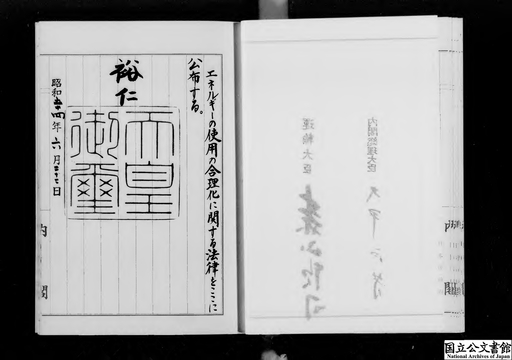 エネルギーの使用の合理化に関する法律をここに
公布する。
裕仁
天皇
御璽
昭和五十四年六月二十二日
内閣
内閣総理大臣
大平正芳
運輸大臣
森山欽司
内閣
国立公文書館
National Archives of Japan